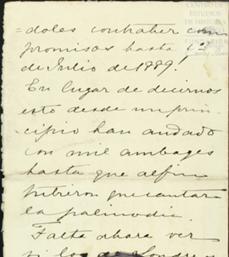 =doles contraher com
promisos hasta 1º
de Julio de 1889!
En lugar de decirnos
esto desde un prin-
cipio han andado
con mil ambages
hasta que al fin
que cantar
la palinodia.
Falta ahora ver
si los de Londres